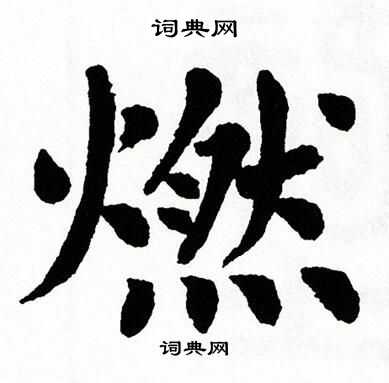 词典网
燃
词典网